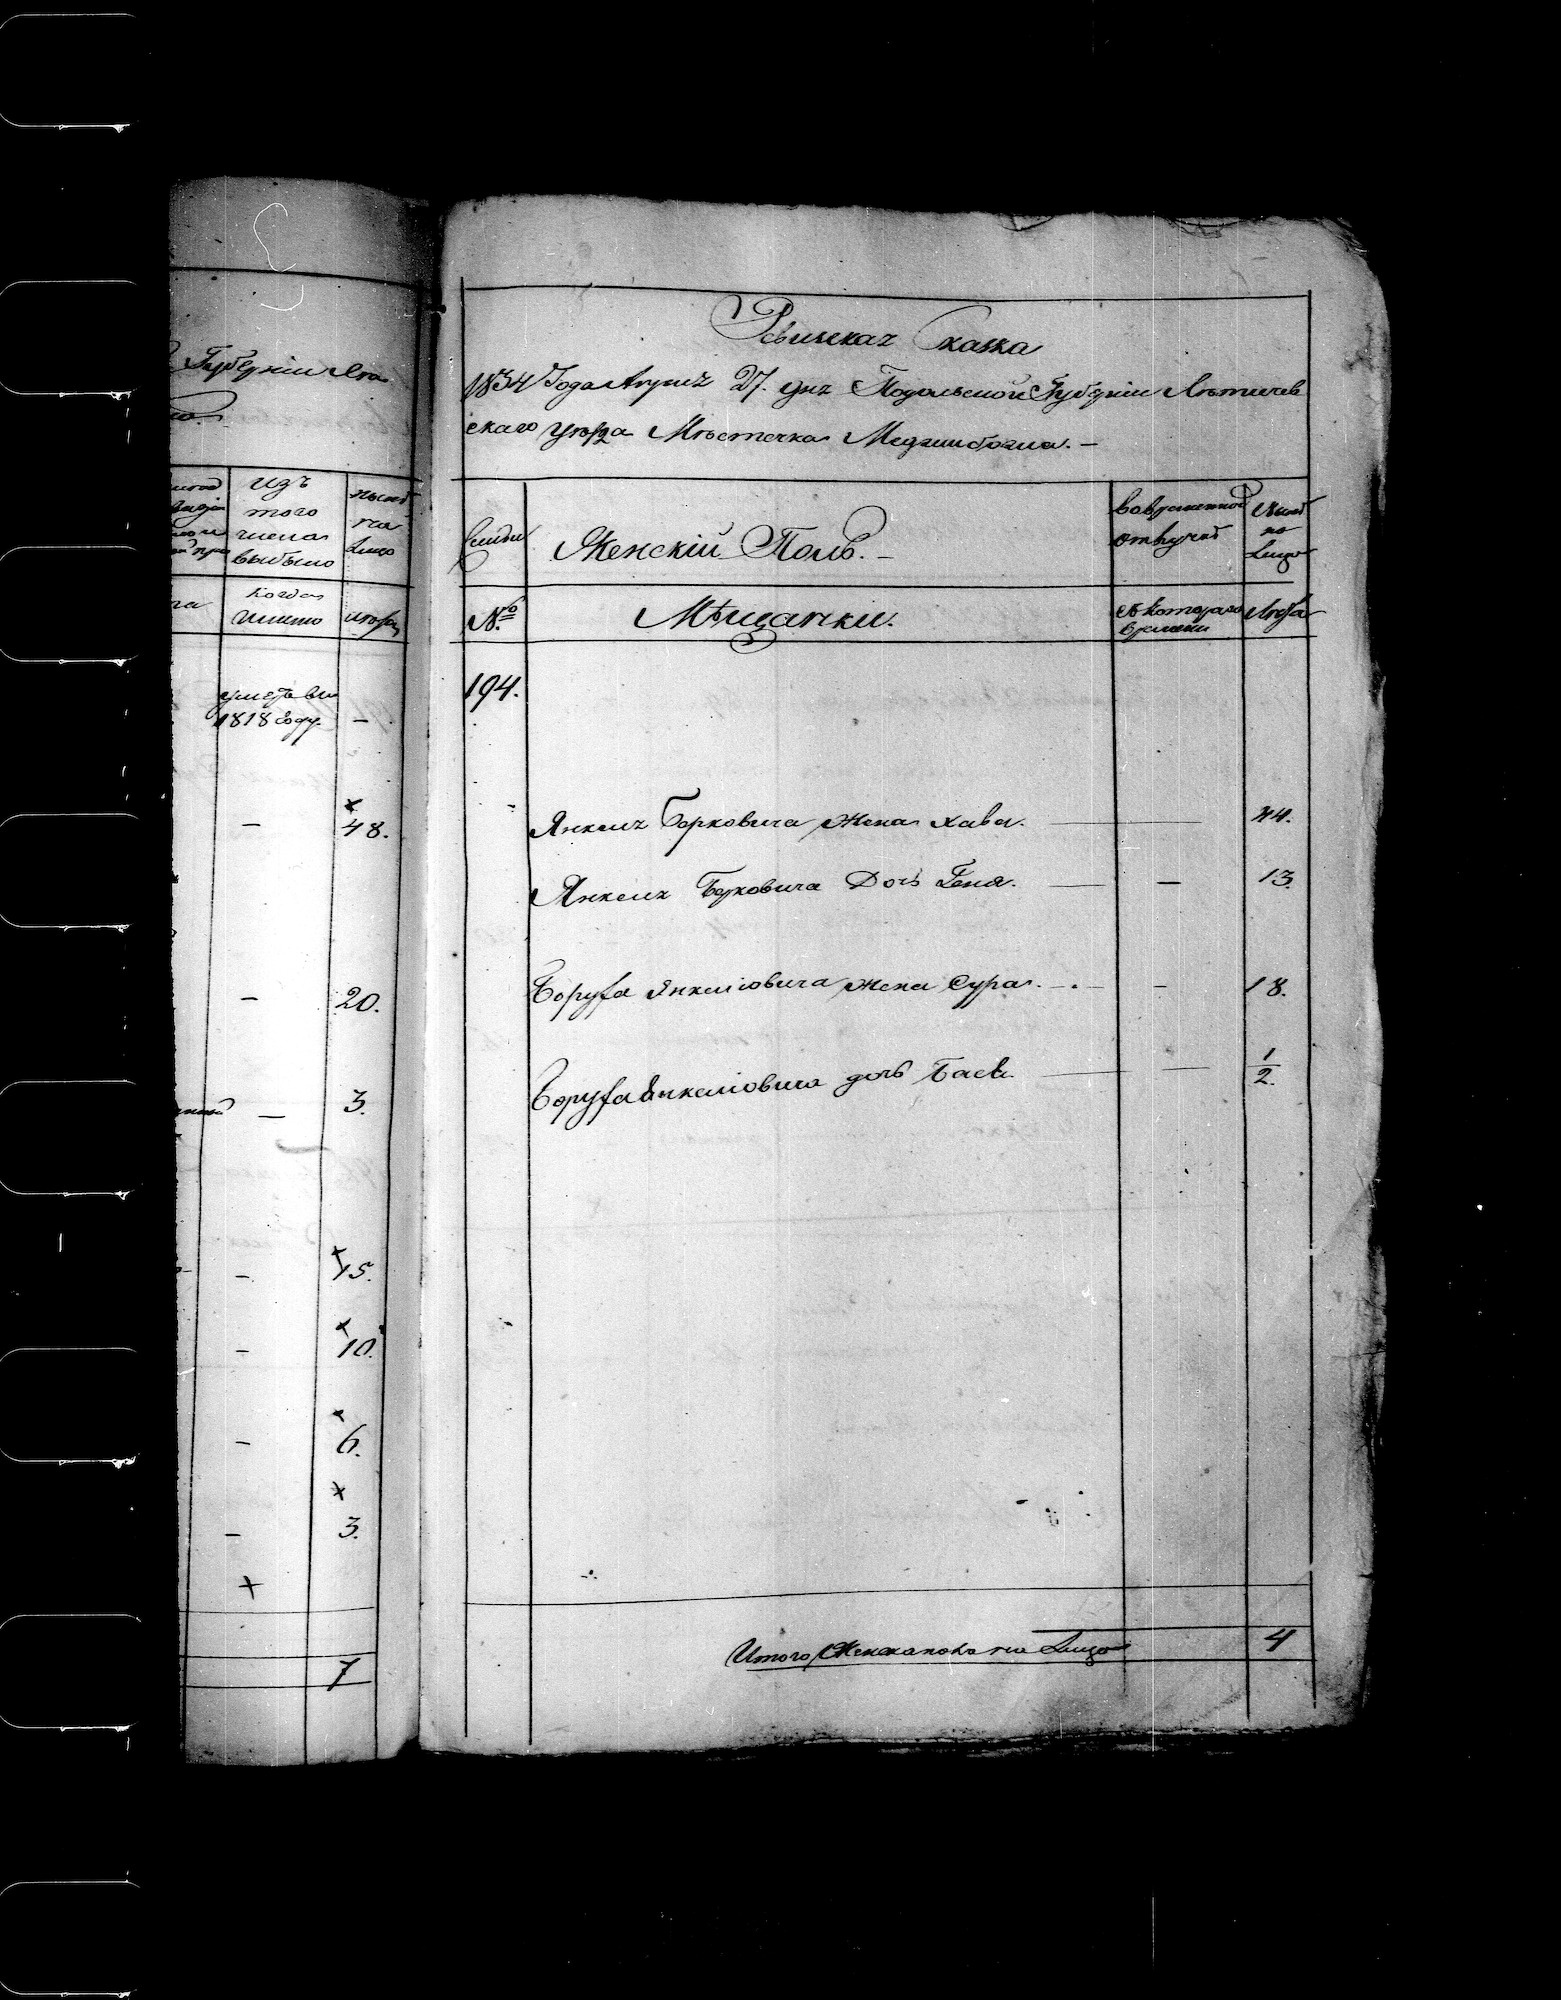 Губерніи Лѣ
изъ
того
числа
выбыло
ныне
на
Лицо
Когда
имено
Лѣта
умеръ въ
1818 году. —
— 48.
— 20.
— 3.
— 15.
— 10.
— 6.
— 3.
7
Ревизская Сказка
1834 Года Апреля 27. дня Подольской Губерніи Лѣтичев
скаго уѣзда Мѣстечка Меджибожа. —
Семьи
Женскій Полъ. —
Вовременной
отлучкѣ
Ныне
на
Лицо
№
Мѣщанки.
съ котораго
времени
Лѣта
194.
Янкеля Берковича жена Хава. — 44.
Янкеля Берковича Дочь Геня. — — 13.
Боруха Янкелiовича жена Сура. — — 18.
Боруха Янкелiовича дочь Бася. — — 1/2.
Итого Женска пола на Лицо 4